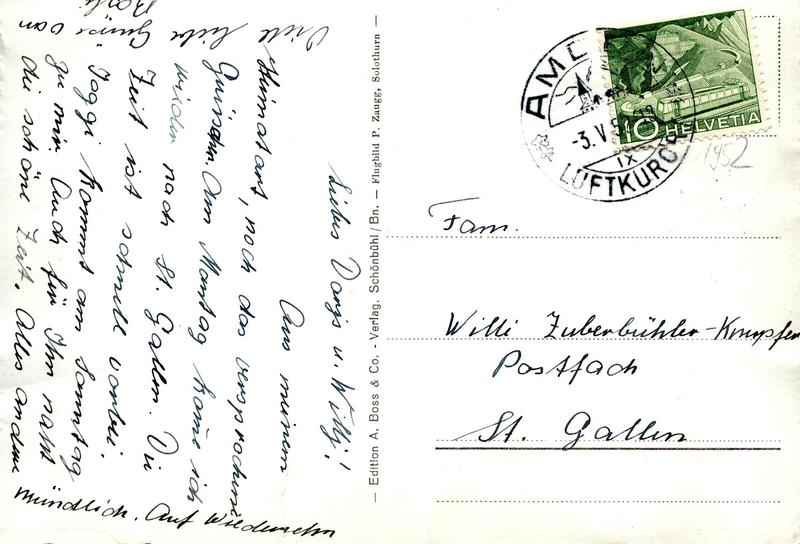 Liebes u. Willj!
Aus meinem
Heimatort, noch das versprochene
Am Montag kome ich
wieder nach St. Gallen. Die
Zeit ist schnell vorbei.
kommt am Sonntag
zu mir. Auch für Ihn naht
die schöne Zeit. Alles andere
mündlich. Auf Wiedersehn
Viele liebe Grüsse von
— Edition A. Boss & Co. - Verlag, Schönbühl/Bn. — Flugbild P. Zaugg, Solothurn —
-3.V.
IX
LUFTKURORT
10 HELVETIA
1952
Fam.
Willi Zuberbühler-Knupfer
Postfach
St. Gallen